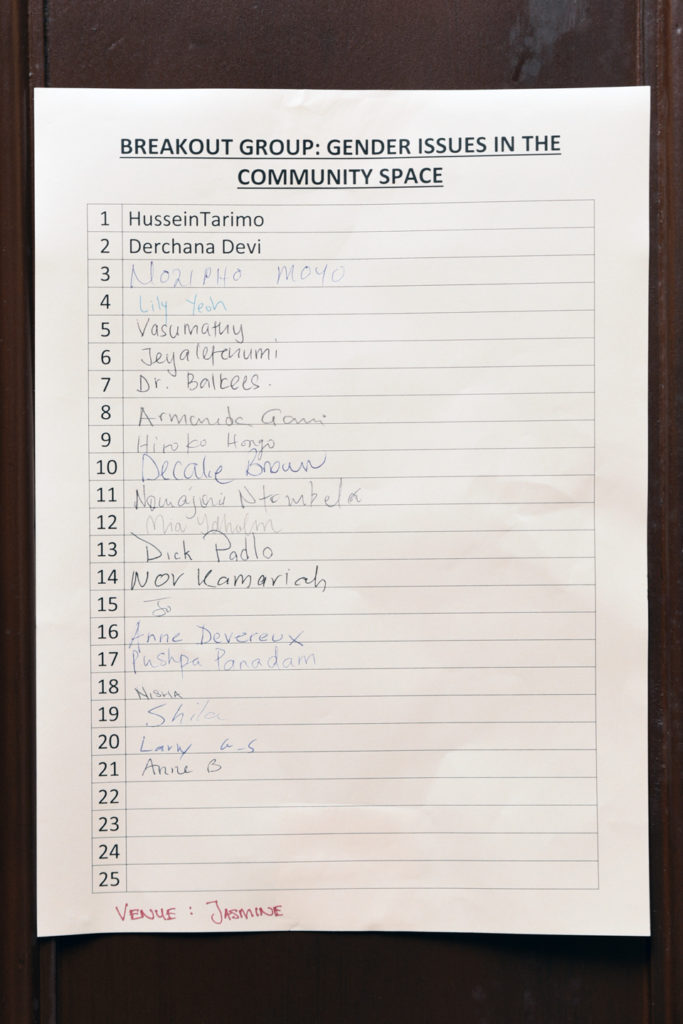 BREAKOUT GROUP: GENDER ISSUES IN THE
COMMUNITY SPACE
1 HusseinTarimo
2 Derchana Devi
3 NOZIPHO MOYO
4 Lily Yeoh
5 Vasumathy
6 Jeyaletchumi
7 Dr. Balkees.
8 Armanda Gani
9 Hiroko Hongo
10 Decalie Brown
11 Ntombela
12 Mia
13 Dick Padlo
14 Nor Kamariah
15 Jo
16 Anne Devereux
17 Pushpa Panadam
18 NISHA
19 Shila
20 Larry G-S
21 Anne B
22
23
24
25
VENUE : JASMINE